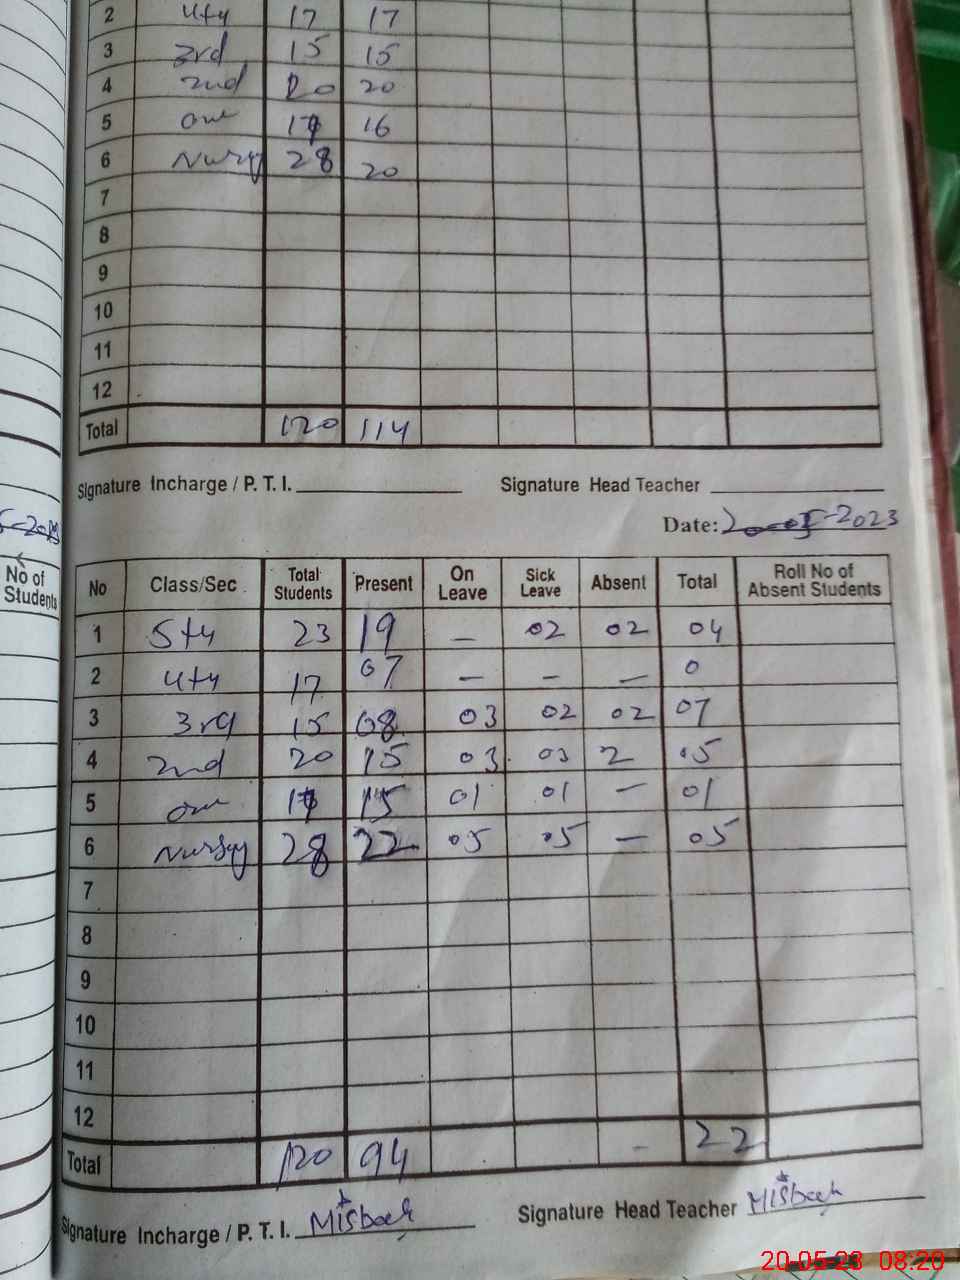 2 4th 17 17
3 3rd 15 15
4 2nd 20 20
5 one 17 16
6 Nursy 28 20
7
8
9
10
11
12
Total 120 114
Signature Incharge / P. T. I. Signature Head Teacher
Date: 20-05-2023
No of
Students
No Class/Sec Total Students Present On Leave Sick Leave Absent Total Roll No of Absent Students
1 5th 23 19 – 02 02 04
2 4th 17 07 – – – 0
3 3rd 15 08 03 02 02 07
4 2nd 20 15 03 03 2 05
5 one 17 15 01 01 – 01
6 Nursy 28 22 05 05 – 05
7
8
9
10
11
12
Total 120 94 – 22
Signature Incharge / P. T. I. Misbah Signature Head Teacher Misbah
20-05-23 08:20